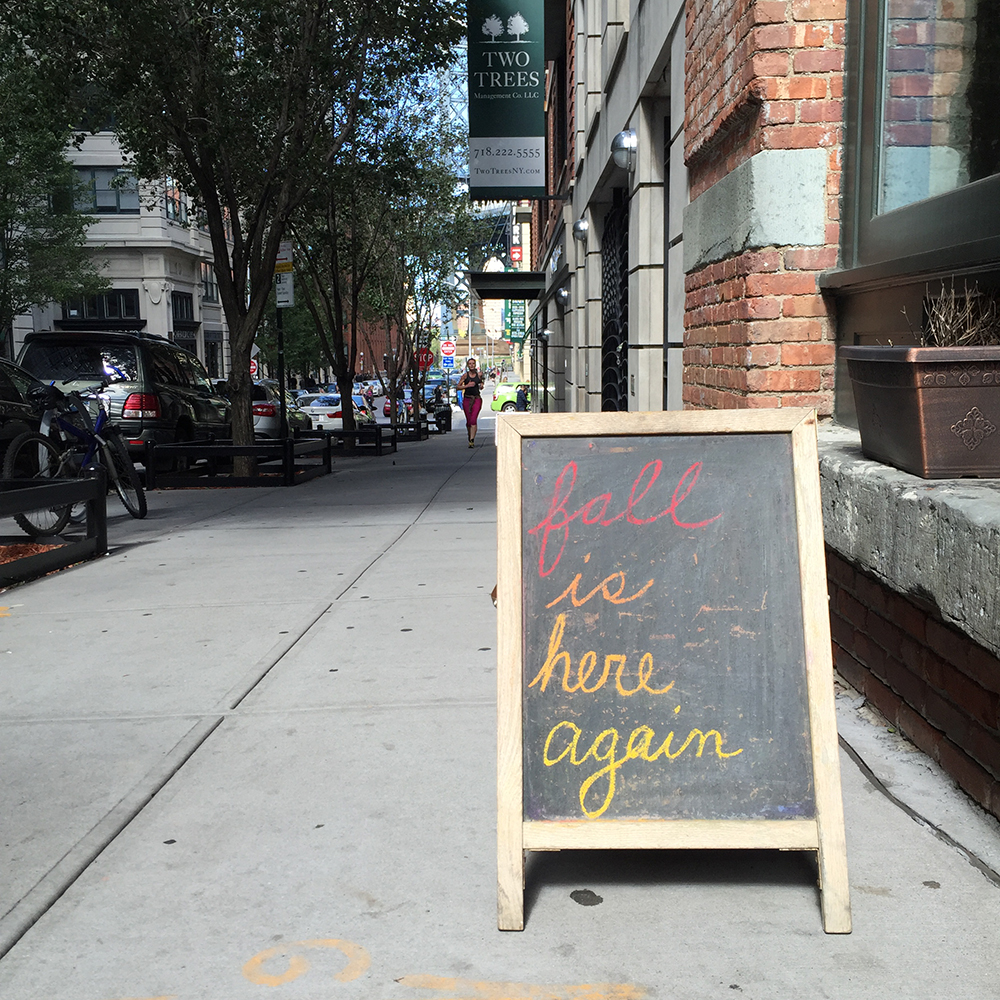 TWO
TREES
Management Co. LLC
718.222.5555
TWOTREESNY.COM
STOP
fall
is
here
again